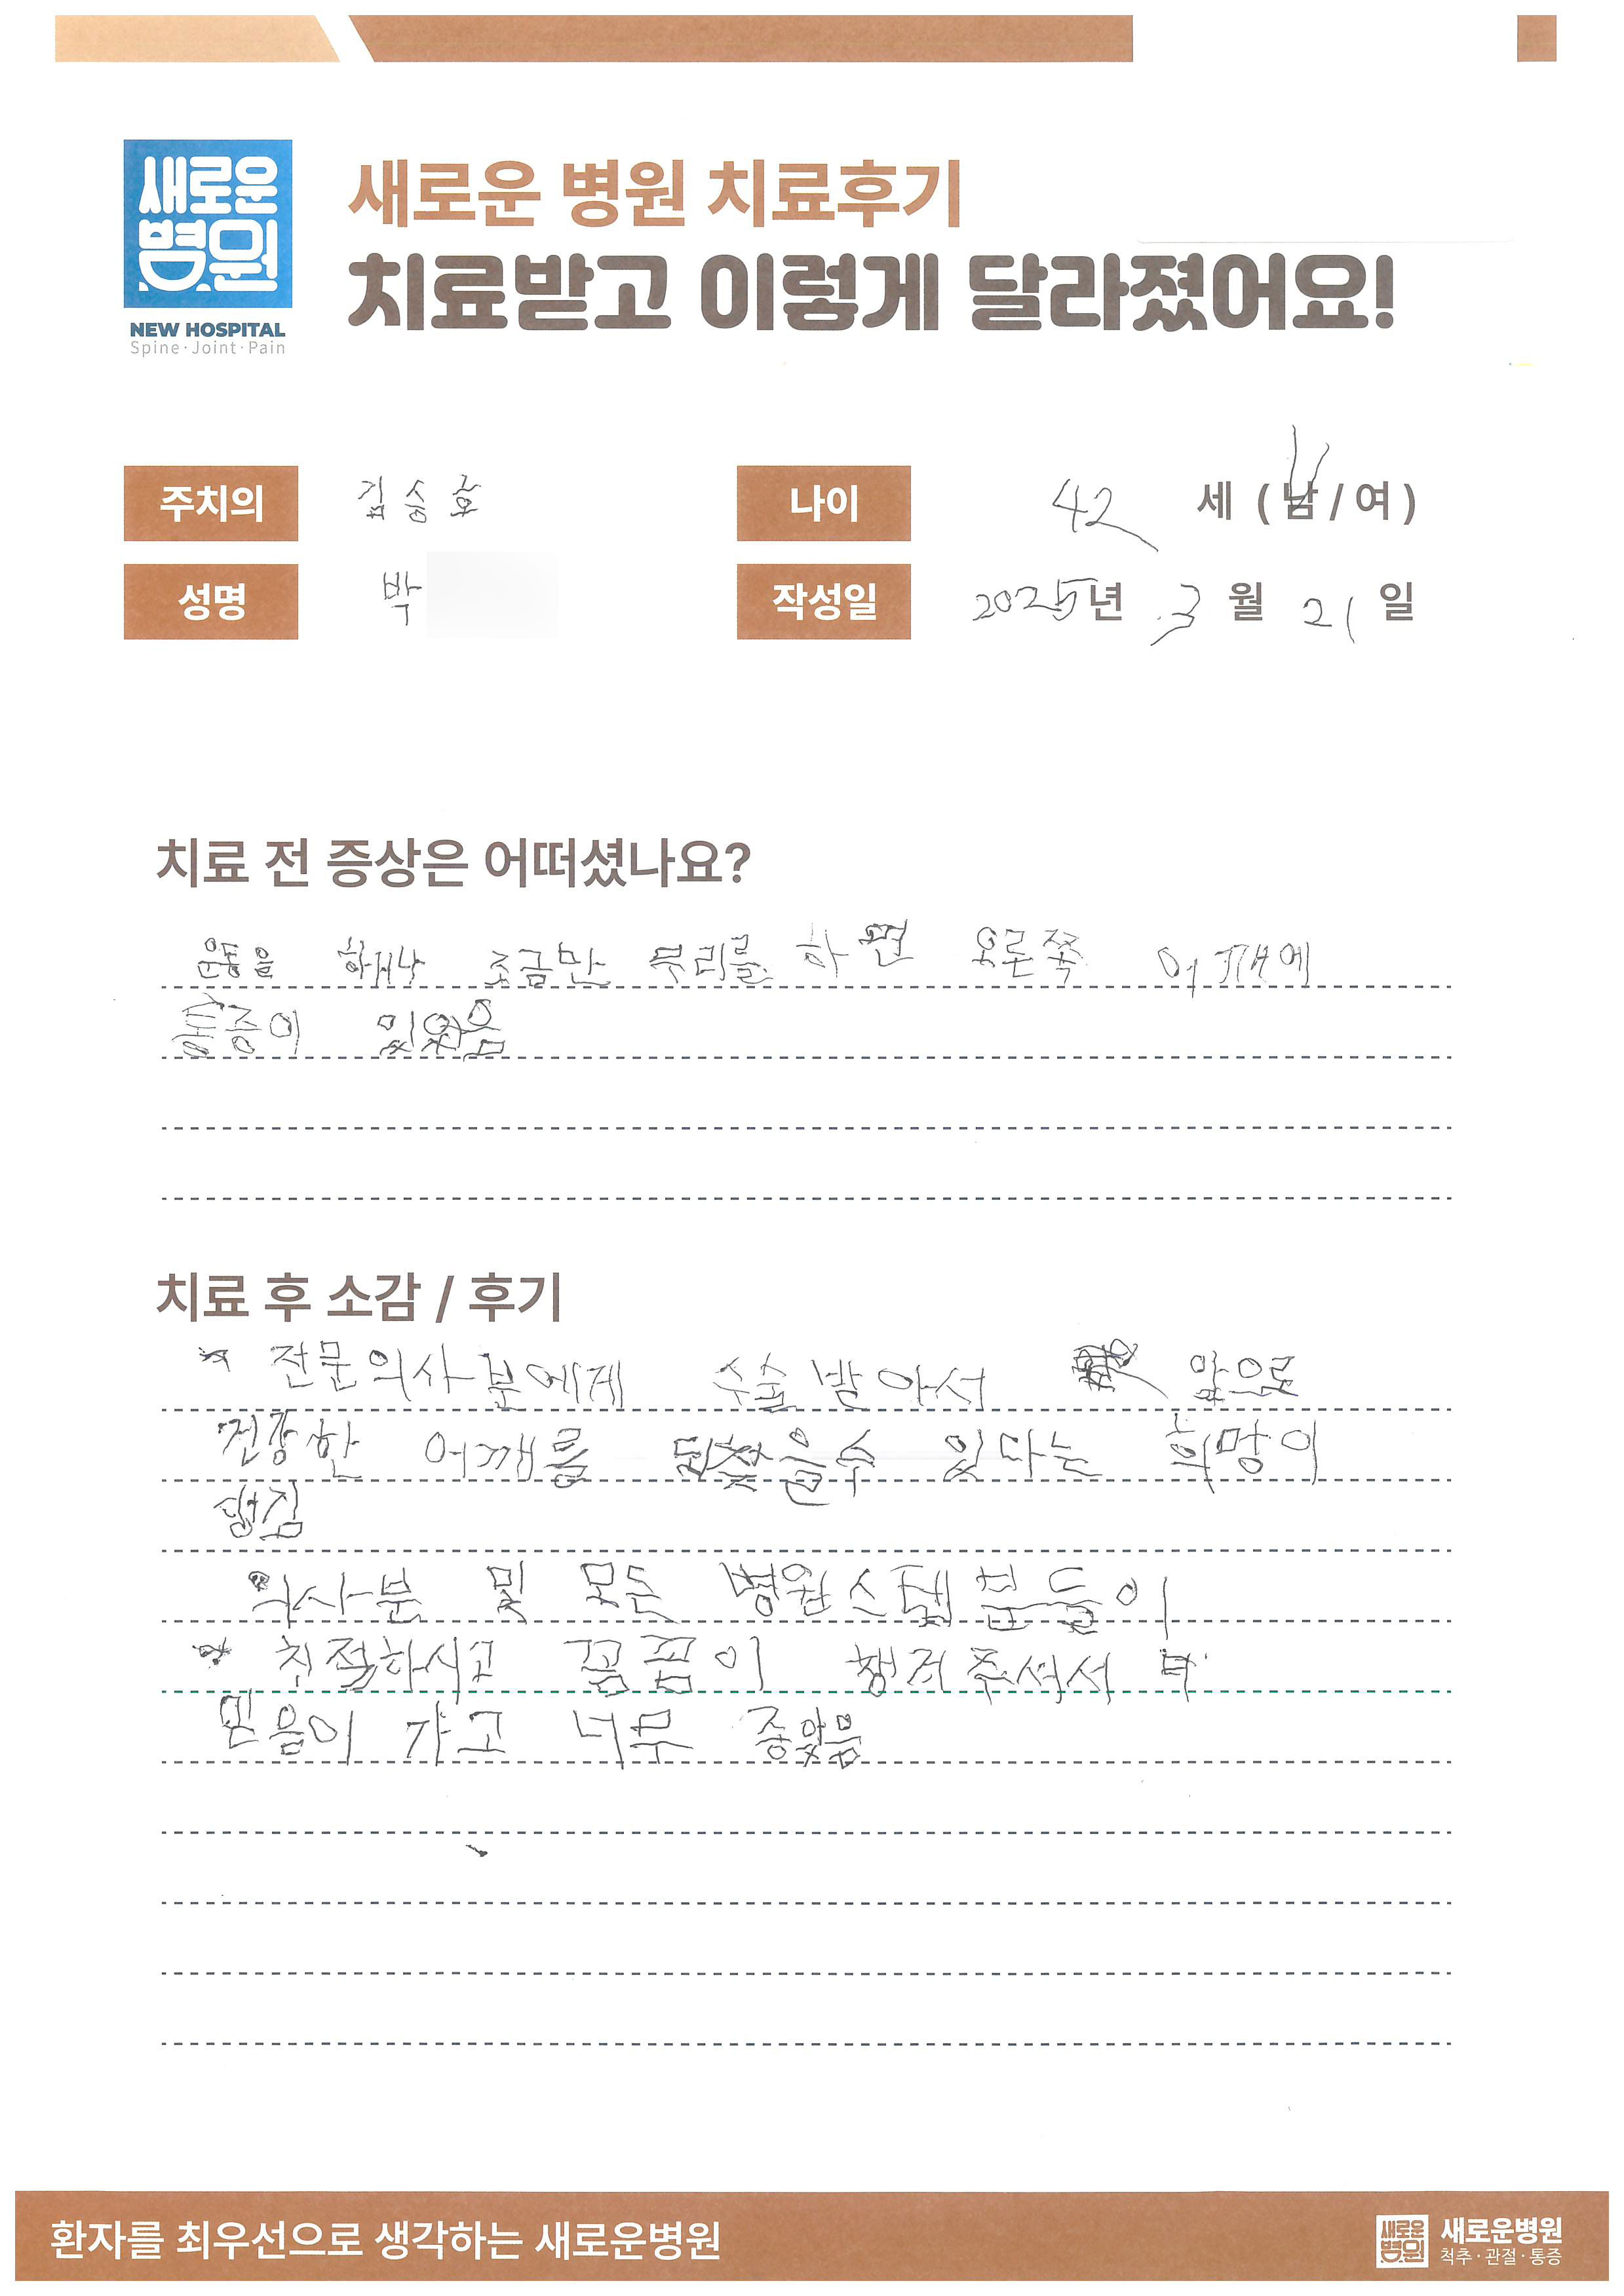 새로운
병원
NEW HOSPITAL
Spine·Joint·Pain
새로운 병원 치료후기
치료받고 이렇게 달라졌어요!
주치의 김승호 나이 42 세 ( 남 / 여 )
성명 박 작성일 2025년 3 월 21 일
치료 전 증상은 어떠셨나요?
운동을 하거나 조금만 무리를 하면 오른쪽 어깨에
통증이 있었음
치료 후 소감 / 후기
* 전문의사분에게 수술받아서 앞으로
건강한 어깨를 되찾을수 있다는 희망이
생김
의사분 및 모든 병원스텝분들이
* 친절하시고 꼼꼼이 챙겨주셔서
믿음이 가고 너무 좋았음
환자를 최우선으로 생각하는 새로운병원
새로운
병원
새로운병원
척추·관절·통증